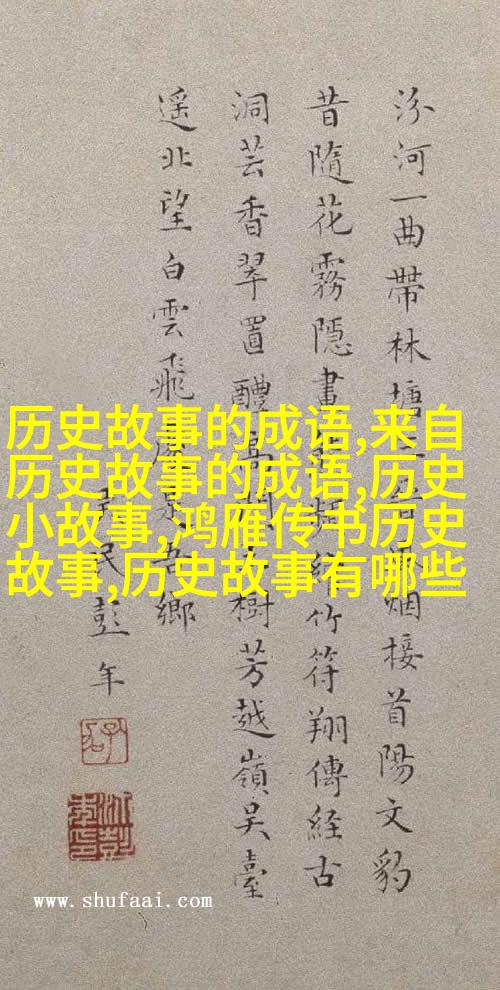 汾河一曲帶林塘烟接首陽文豹
昔隨花霧隱畫竹符翔傳經古
洞芸香翠置醴樹芳越嶺吴臺
遥北望白雲飛鄉
民彭年
历史故事的成语,来自
历史故事的成语,历史
小故事,鸿雁传书历史
故事,历史故事有哪些
www.shufaai.com